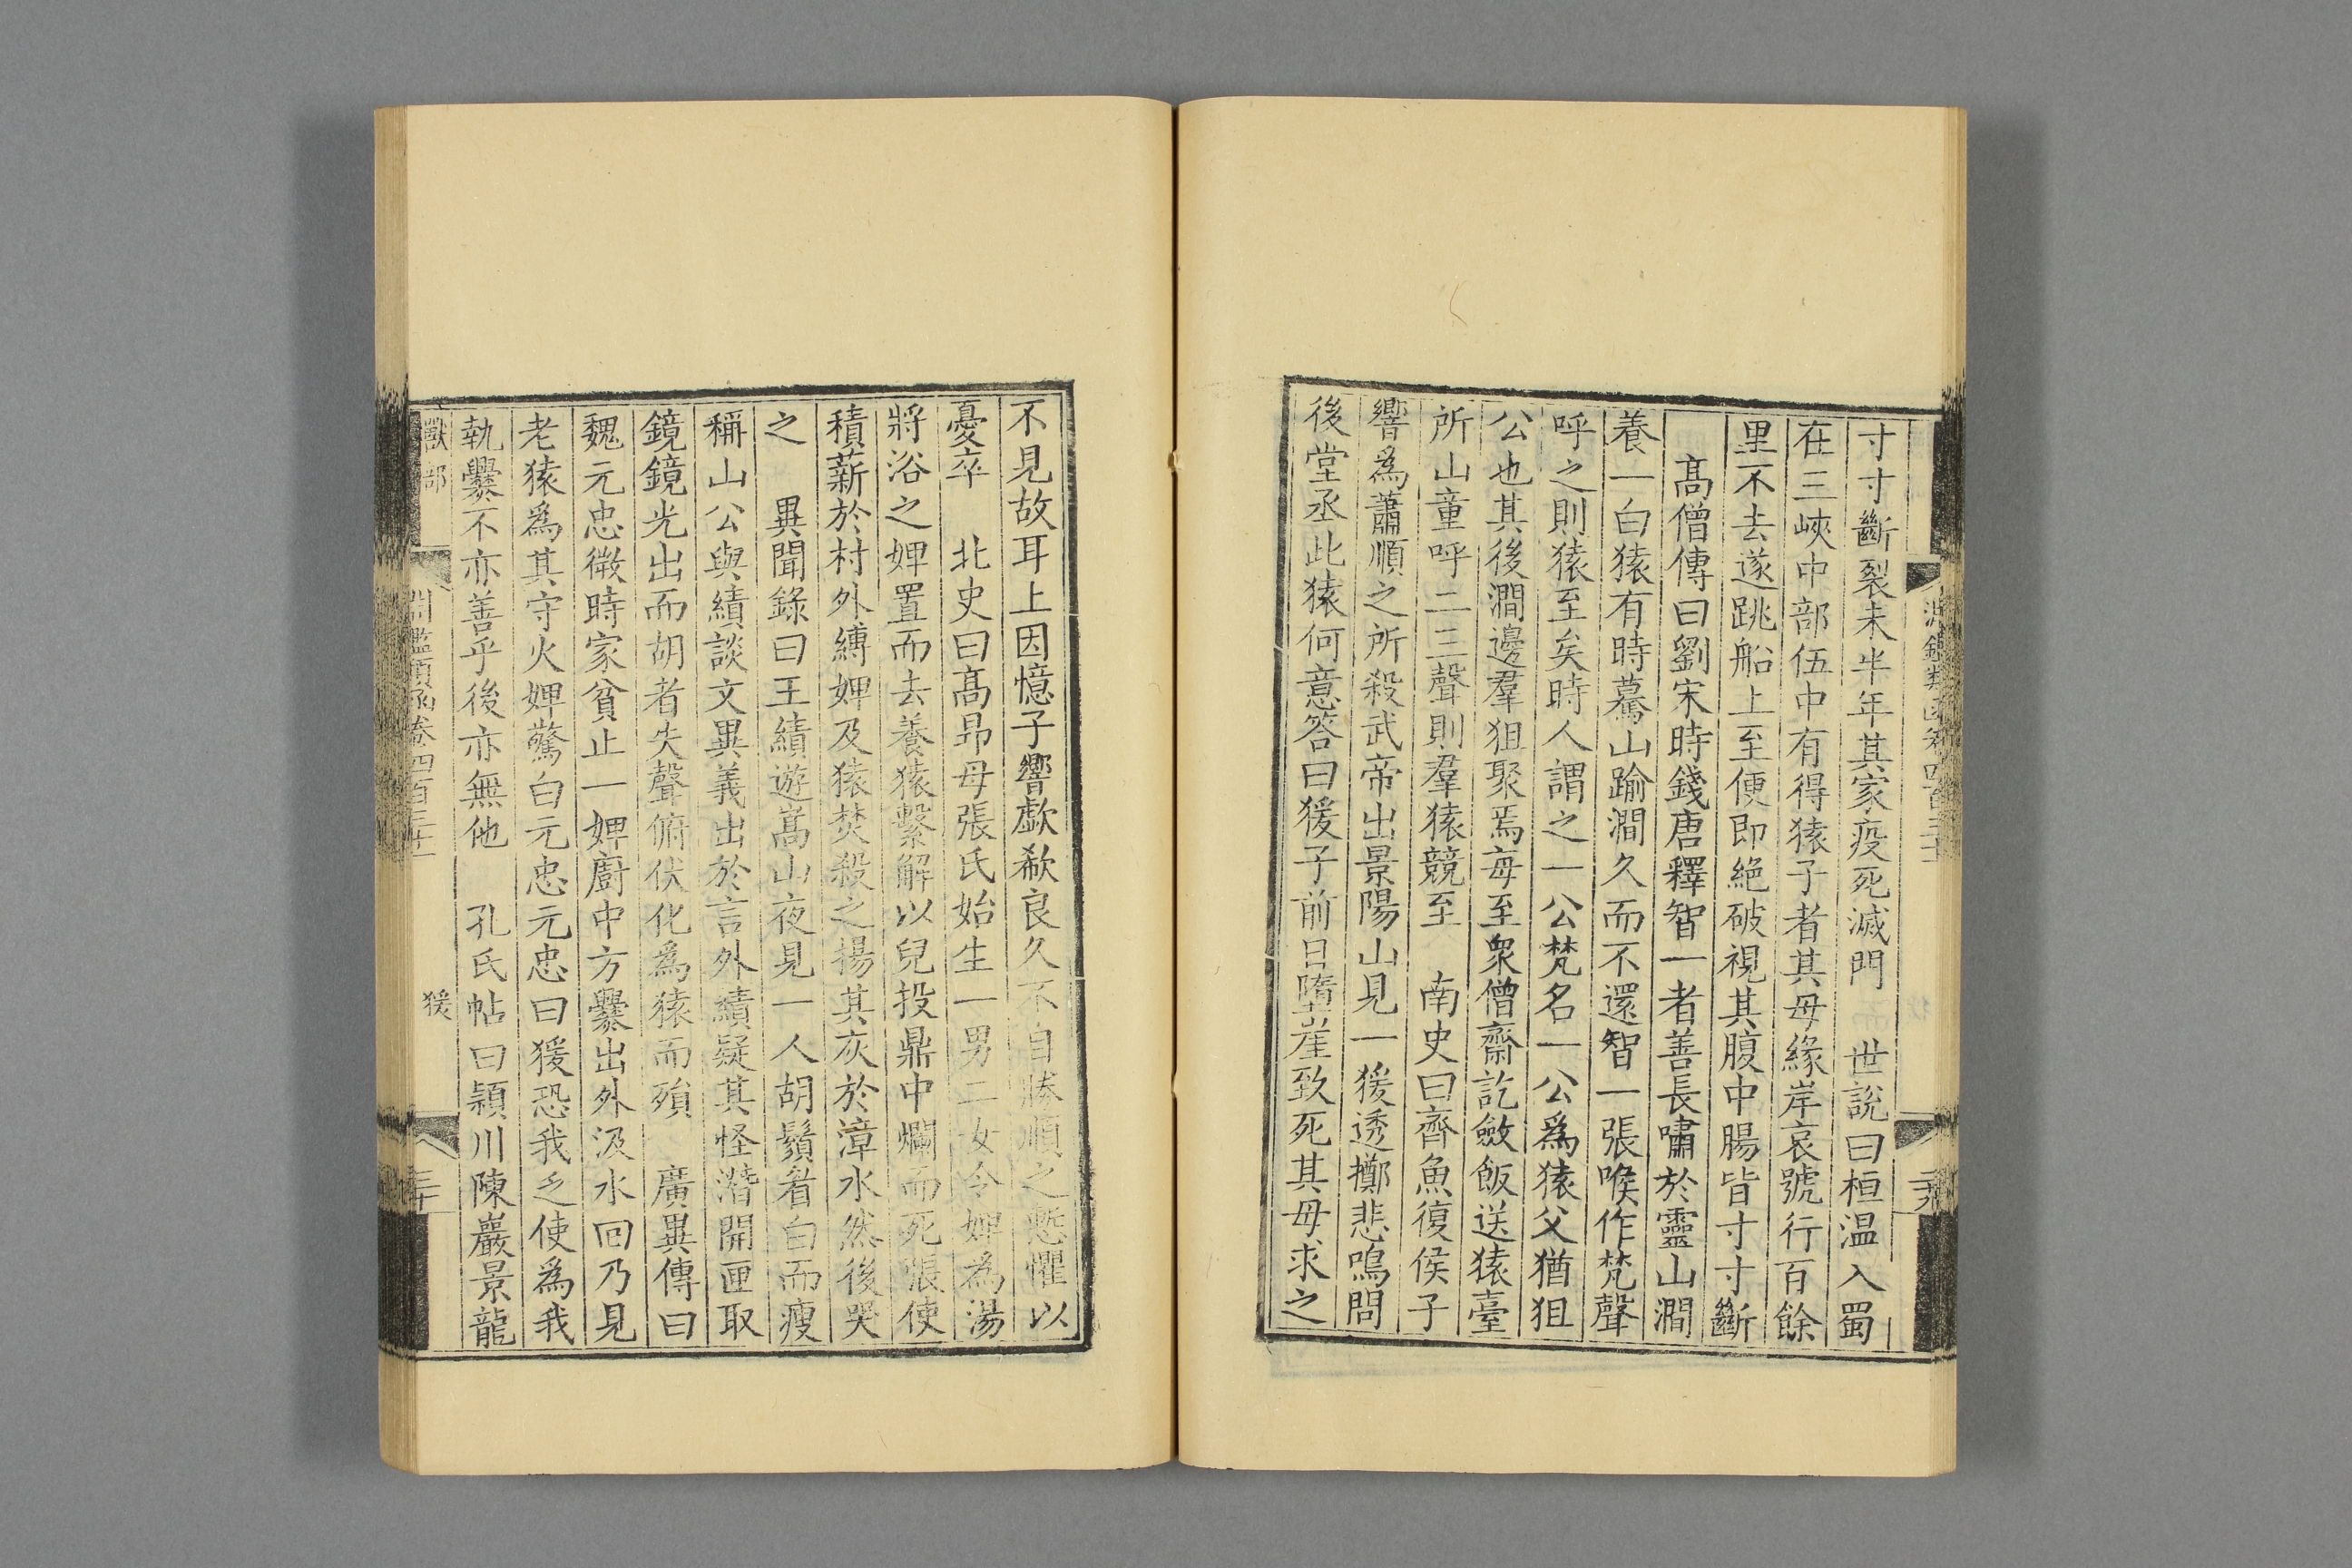 寸寸斷裂未半年其家疫死滅門　世說曰桓温入蜀
在三峽中部伍中有得猿子者其母緣岸哀號行百餘
里不去遂跳船上至便即絶破視其腹中腸皆寸寸斷
高僧傳曰劉宋時錢唐釋智一者善長嘯於靈山澗
養一白猿有時驀山踰澗久而不還智一張喉作梵聲
呼之則猿至矣時人謂之一公梵名一公爲猿父猶狙
公也其後澗邊羣狙聚焉每至衆僧齋訖斂飯送猿臺
所山童呼二三聲則羣猿競至　南史曰齊魚復侯子
響為蕭順之所殺武帝出景陽山見一猨透擲悲鳴問
後堂丞此猿何意答曰猨子前日墮崖致死其母求之
不見故耳上因憶子響歔欷良久不自勝順之慙懼以
憂卒　北史曰高昂母張氏始生一男二女令婢為湯
將浴之婢置而去養猿繫解以兒投鼎中爛而死張使
積薪於村外縛婢及猿焚殺之揚其灰於漳水然後哭
之　異聞錄曰王績遊嵩山夜見一人胡鬚眉白而瘦
稱山公與績談文異義出於言外績疑其怪潛開匣取
鏡鏡光出而胡者失聲俯伏化爲猿而殞　廣異傳曰
魏元忠微時家貧止一婢廚中方爨出外汲水回乃見
老猿爲其守火婢驚白元忠元忠曰猨恐我乏使爲我
執爨不亦善乎後亦無他　孔氏帖曰潁川陳巖景龍
獸部　淵鑑類函卷四百三十一　猨　三十